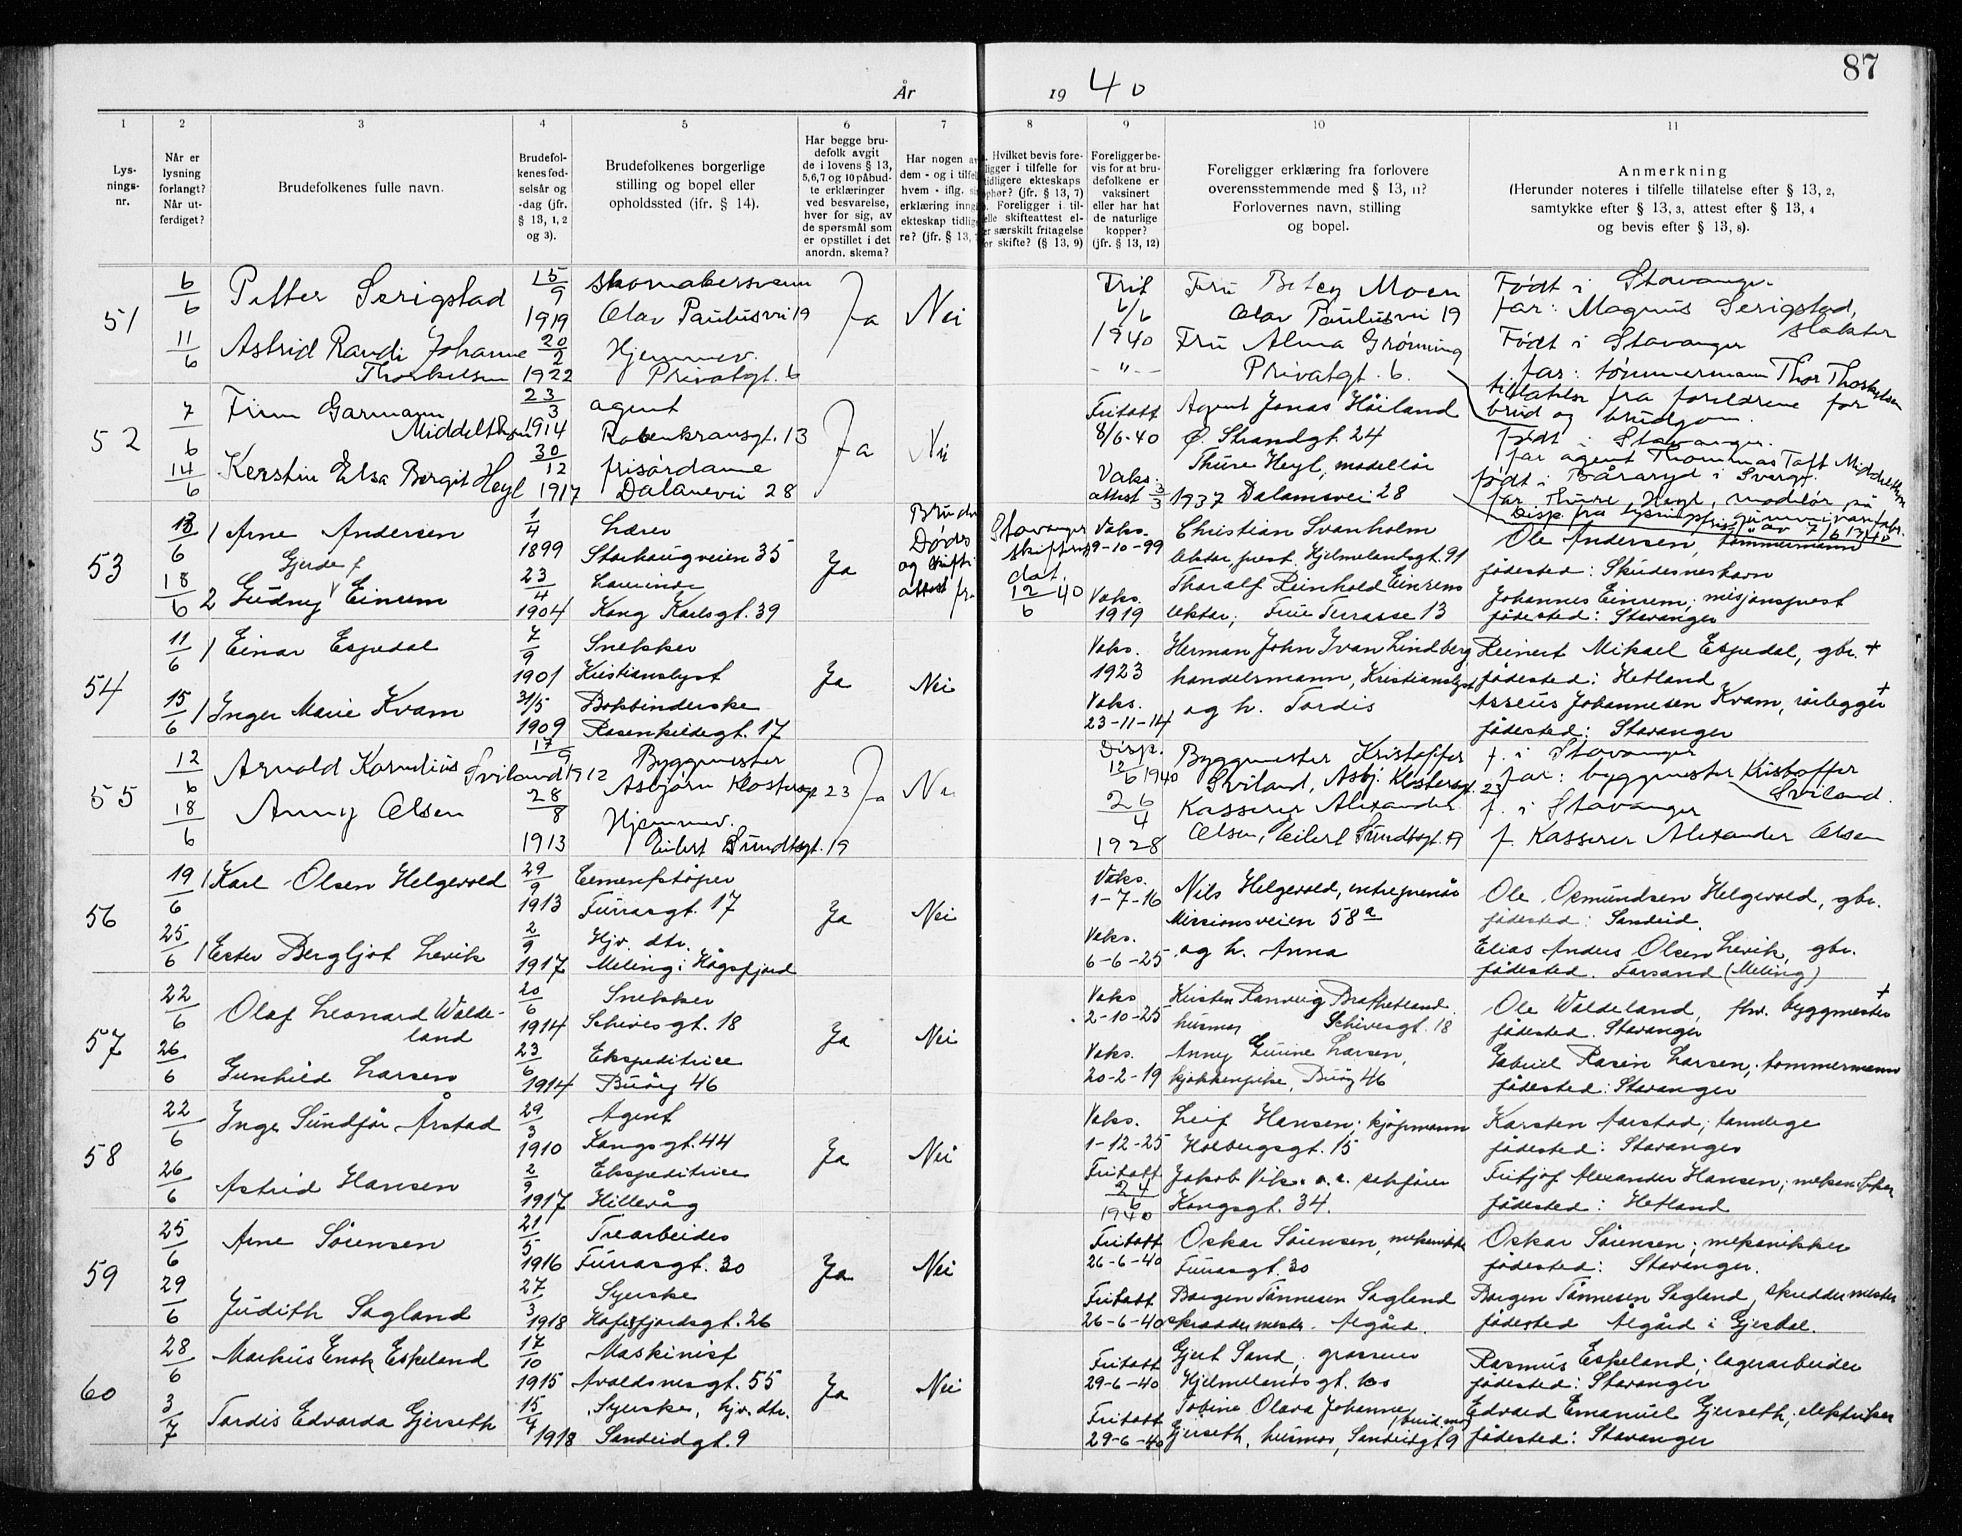 87
År
19 40
1
2
3
4
5
6
7
8
9
10
11
Lys-
nings-
nr.
Når er
lysning
forlangt?
Når ut-
ferdiget?
Brudefolkenes fulle navn.
Brudefol-
kenes fød-
selsår og
-dag (jfr.
§ 13, 1, 2
og 3).
Brudefolkenes borgerlige
stilling og bopel eller
opholdssted (ifr. § 14).
Har begge bru-
defolk avgit
de i lovens § 13,
5,6,7 og 10 påbud-
te erklæringer
ved besvarelse,
hver for sig, av
de spørsmål som
er opstillet i det
anordn. skema?
Har nogen av
dem - og i tilfel
hvem - iflg. si
erklæring inng
ekteskap tidlig
re? (jfr. § 13,
Hvilket bevis fore-
ligger i tilfelle for
tidligere ekteskaps
ophør? (jfr. § 13, 7)
Foreligger i til-
felle skifteattest el-
er særskilt fritagelse
or skifte? (§ 13, 9)
Foreligger be-
vis for at bru-
defolkene er
vaksinert
eller har hat
de naturlige
kopper?
(jfr. § 13, 12)
Foreligger erklæring fra forlovere
overensstemmende med § 13, 11?
Forlovernes navn, stilling
og bopel.
Anmerkning
(Herunder noteres i tilfelle tillatelse efter § 13, 2,
samtykke efter § 13, 3, attest efter § 13, 4
og bevis efter § 13, 8).
51
6/6
11/6
Petter Serigstad
15/9
1919
skomakersvenn
Olav Paulusvei 19
Ja
Nei
Frit
6/6
1940
Fru Betzy Moen
Olav Paulusvei 19
Født i Stavanger.
far: Magnus Serigstad,
slakter
Astrid Randi Johanne
Thorkelsen
20/2
1922
Hjemmev.
Privatgt. 6
- " -
Fru Alma Grønning
Privatgt. 6.
Født i Stavanger
far: tømmermann Thor Thorkelsen
tillatelse fra foreldrene for
brud og brudgom.
52
7/6
14/6
Finn Garmann
Middelthon
23/3
1914
agent
Rosenkransgt. 13
Ja
Nei
Fritatt
8/6-40
Agent Jonas Håiland
Ø. Strandgt. 24
født i Stavanger.
far agent Thommas Taft Middelthon
Kerstin Elsa Bergit Heyl
30/12
1917
frisørdame
Dalanevei 28
Vaks.
attest 3/3 1937
Thure Heyl, modellør
Dalanevei 28
født i Båraryd i Sverge.
far Thure Heyl, modelør på
gummivarefabr.
Disp. fra lysningsfrist av 7/6 1940
53
13/6
18/6
1 Arne Andersen
1/4
1899
Lærer
Storhaugveien 35
Ja
Brud
Dødes
og skifti
attest fra
Stavanger
skifterett
dat.
12/6 40
Vaks.
9-10-99
Christian Svanholm
lektor, prest. Hjelmelandsgt. 91
Ole Andersen, tømmermann
fødested: Skudeneshavn
Gjerde f
2 Gudny Einrem
23/4
1904
Lærerinde
Kong Karlsgt. 39
Vaks.
1919
Thoralf Reinhold Einrem
lektor, Frue Terrasse 13
Johannes Einrem, misjonsprest
fødested: Stavanger
54
11/6
15/6
1 Einar Espedal
7/9
1901
Snekker
Kristianslyst
Ja
Nei
Vaks.
1923
Herman John Ivan Lindberg
handelsmann, Kristianslyst
Reinert Mikael Espedal, gbr. +
fødested: Hetland
1 Inger Marie Kvam
31/5
1909
Bokbinderske
Rosenkildegt. 17
Vaks.
23-11-14
og h. Tordis
Asseus Johannesen Kvam, rørlegger +
fødested: Stavanger
55
12/6
18/6
Arnold Kornelius Sviland
17/9
1912
Byggmester
Asbjørn Klostersgt 23
Ja
Nei
Disp.
12/6 1940
Byggmester Kristoffer
Sviland, Asbj. Klostersgt. 23
f. i Stavanger
far: byggmester Kristoffer
Sviland.
Anny Olsen
28/8
1913
Hjemmev.
Eilert Sundtsgt. 19
26/4
1928
Kasserer Alexander
Olsen, Eilert Sundtsgt. 19
f. i Stavanger
f. Kasserer Alexander Olsen
56
19/6
25/6
1 Karl Olsen Helgevold
29/9
1913
Cementstøper
Furrasgt. 17
Ja
Nei
Vaks.
1-7-16
Nils Helgevold, entreprenør
Missionsveien 58a
Ole Osmundsen Helgevold, gbr.
fødested: Sandeid.
1 Ester Bergljot Levik
2/9
1917
Hjv. dtr.
Meling i Høgsfjord
Vaks.
6-6-25
og h. Anna
Elias Anders Olsen Levik, gbr.
fødested. Forsand (Meling)
57
22/6
26/6
Olaf Leonard Walde-
land
20/6
1914
Snekker
Schivesgt. 18
Ja
Nei
Vaks
2-10-25
Kristen Ranveig Brathetland
husmor Schivesgt. 18
Ole Waldeland, fhv. byggmester +
fødested. Stavanger
Gunhild Larsen
23/6
1914
Ekspeditrice
Buøy 46
Vaks.
20-2-19
Anny Gurine Larsen,
kjøkkenpike, Buøy 46
Gabriel Rasin Larsen, tømmermann
fødested: Stavanger
58
22/6
26/6
Inge Sundfør Årstad
29/3
1910
Agent
Kongsgt. 44
Ja
Nei
Vaks.
1-12-25
Leif Hansen, kjøpmann
Holbergsgt. 15
Karsten Aarstad, tannlege
fødested: Stavanger
Astrid Hansen
2/9
1917
Ekspeditrice
Hillevåg
Fritatt
24/6
1940
Jakob Vik. o.r. sakfører
Kongsgt. 34.
Fritjof Alexander Hansen, mekaniker
fødested: Hetland
59
25/6
29/6
Arne Sørensen
21/5
1916
Trearbeider
Furrasgt. 30
Ja
Nei
Fritatt
26-6-40
Oskar Sørensen, mekaniker
Furrasgt. 30
Oskar Sørensen, mekanikker
fødested: Stavanger.
Judith Sagland
27/3
1918
Syerske
Hafrsfjordsgt. 26
Fritatt
26-6-40
Børgen Tønnesen Sagland
skreddermester. Ålgård.
Børgen Tønnesen Sagland, skreddermester
fødested Ålgård i Gjesdal.
60
28/6
3/7
Markus Enok Eskeland
17/10
1915
Maskinist
Avaldsnesgt. 55
Ja
Nei
Fritatt
29-6-40
Gjert Sand, grosserer
Hjelmelandsgt. 100
Rasmus Eskeland, lagerarbeider
fødested: Stavanger
Tordis Edvarda Gjerseth
15/7
1918
Syerske, hjv. dtr.
Sandeidgt. 9
Fritatt
29-6-40
Tobine Olava Johanne
Gjerseth, husmor, Sandeidgt 9
Edvard Emanuel Gjerseth, elektriker
fødested: Stavanger